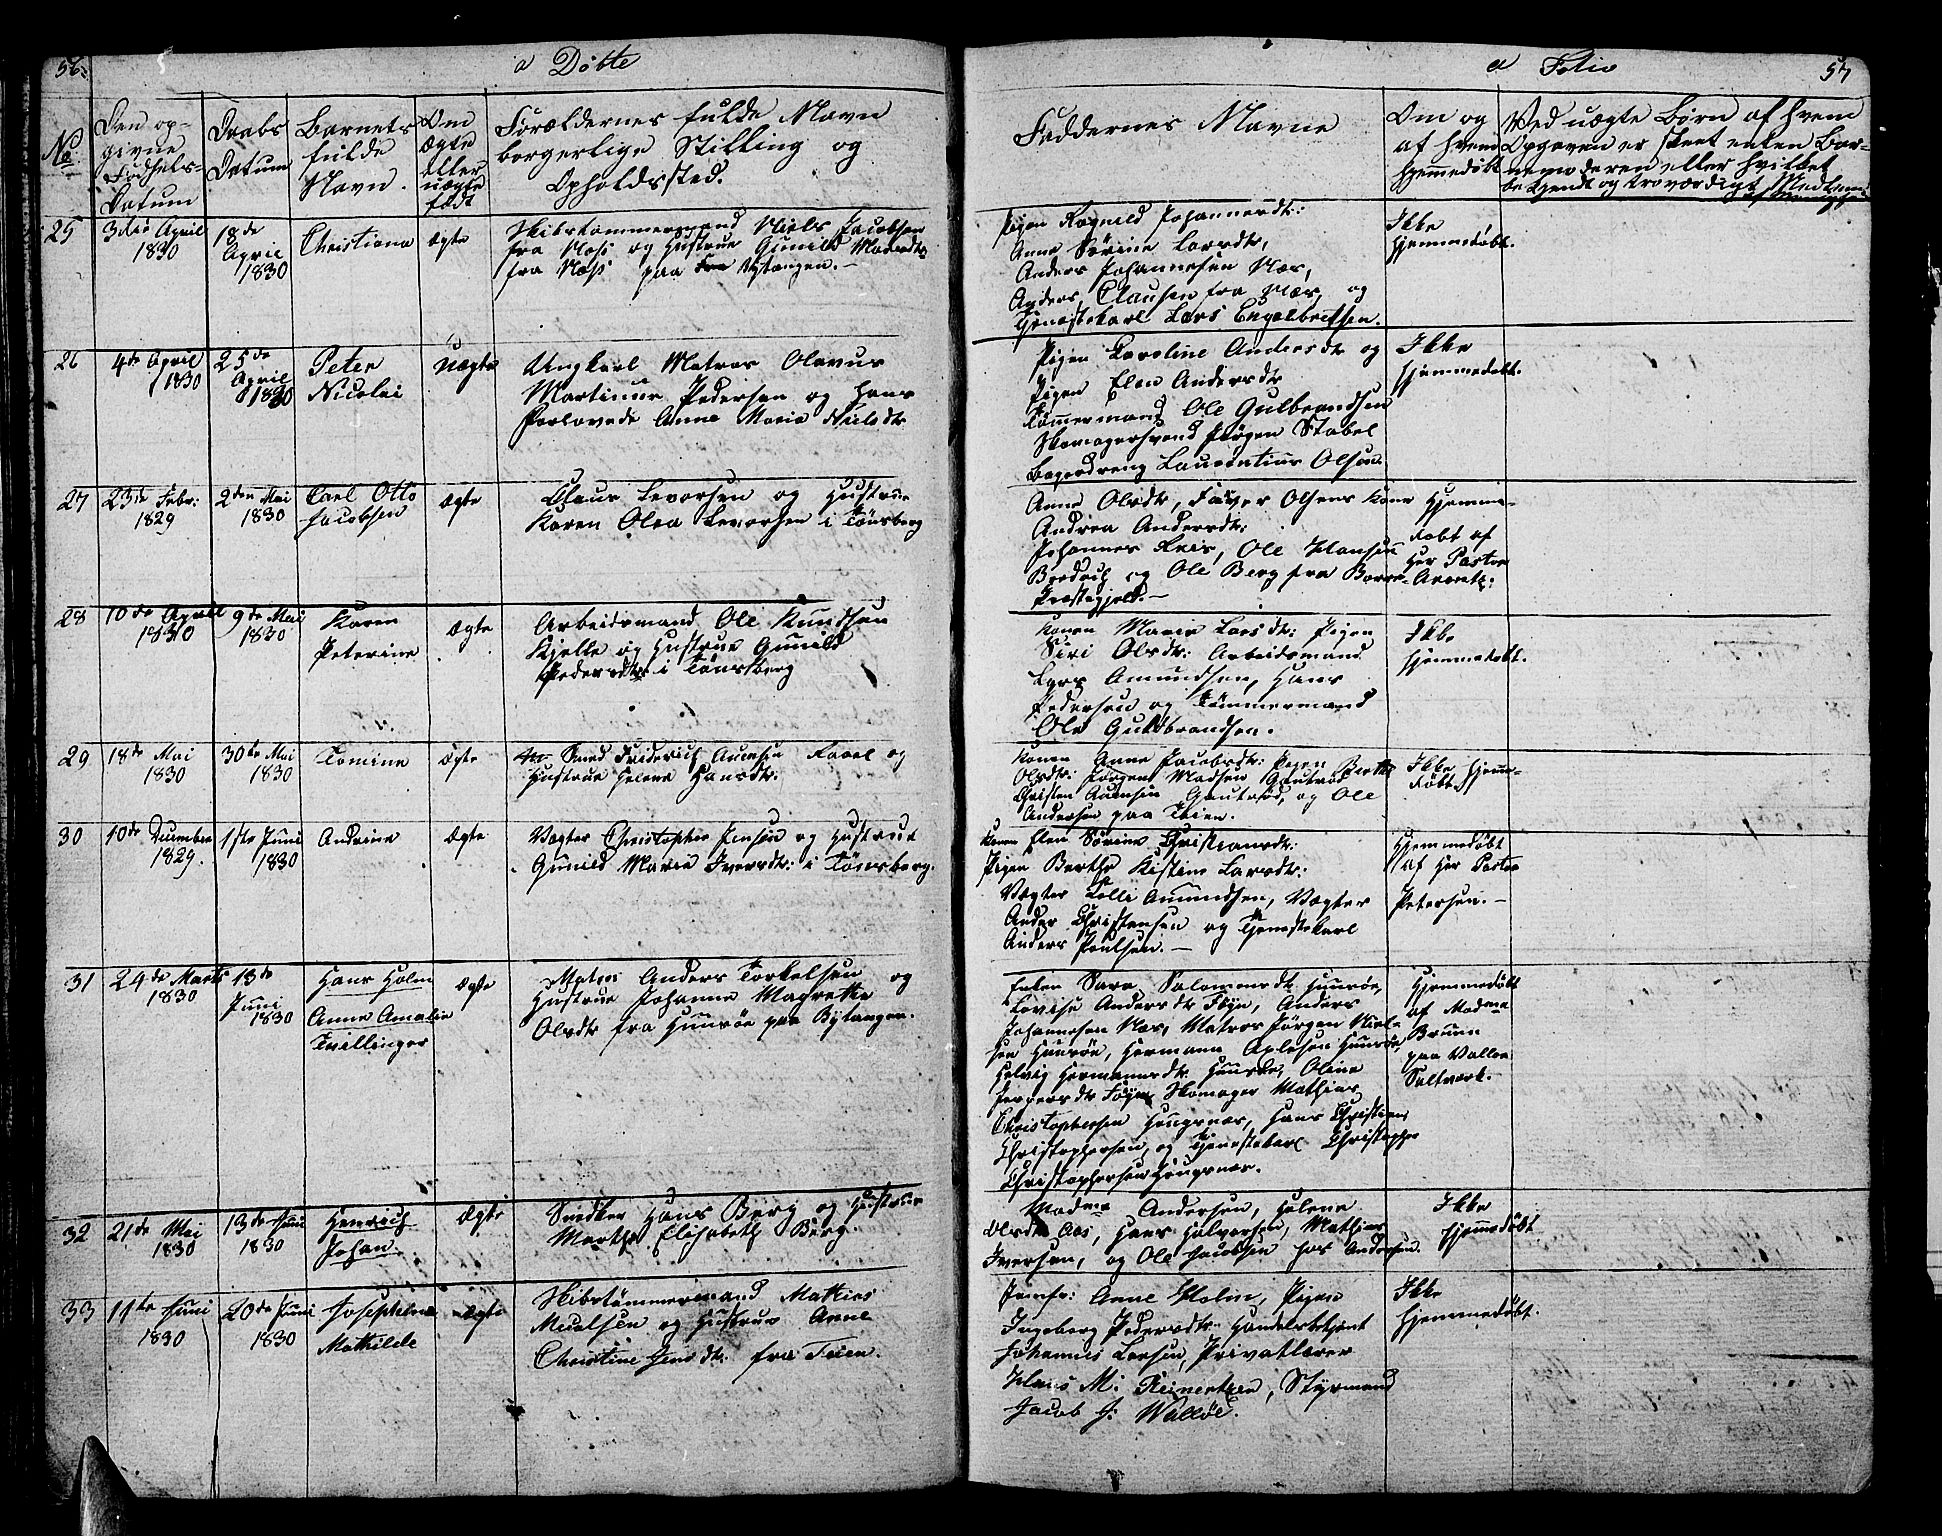 56.
a Döbte
No
Den op-
givne
Fødsels-
Datum
Daabs
Datum
Barnets
fulde
Navn.
Om
ægte
eller
uægte
født
Forældernes fulde Navn
borgerlige Stilling og
Opholdssted.
25
3die April
1830
18de
April
1830
Christiana
ægte
Skibstømmermand Niels Jacobsen
fra Næss og Hustrue Gunild Madsdtr
fra Næss paa Bytangen.
26
4de April
1830
25de
April
1830
Peter
Nicolai
Uægte
Ungkarl Matros Olavus
Martinus Pedersen og Hans
Forlovede Anne Maria Nielsdtr
27
23de Febr:
1829
2den Mai
1830
Carl Otto
Jacobsen
Ægte
Claus Levorsen og Hustrue
Karen Olea Levorsen i Tönsberg
28
10de April
1830
9de Mai
1830
Karen
Peterine
Ægte
Arbeidsmand Ole Knudsen
Kjelle og Hustrue Gunild
Pedersdtr i Tönsberg
29
18de Mai
1830
30te Mai
1830
Tomine
Ægte
Smed Friderich og
Hustrue Helene Hansdtr:
30
10de December
1829.
1ste Juni
1830
Andrine
Ægte
Vægter Christopher Jensen og Hustrue
Gunild Marie Iversdtr: i Tönsberg.
31
24de Marts
1830
13de
Juni
1830
Hans Holm
Anne Amalie
Tvillinger
Ægte
Matros Anders Torkelsen og
Hustrue Johanne Magrethe
Olsdtr fra Huusöe paa Bytangen.
32
21de Mai
1830
13de Juni
1830
Henrich
Johan
Ægte
Snedker Hans Berg og Hustrue
Marthe Elisabeth Berg.
33
11te Juni
1830
20de Juni
1830
Josephine
Mathilde
Ægte
Skibstömmermand Mathias
og Hustrue Anne
Christine Jensdtr. fra Teien.
a Folio
57
Faddernes Navne
Om og
af hvem
hjemmedöbt
Ved uægte Börn af hvem
Opgaven er skeet enten Bar-
nemoderen eller hvilket
bekjendt og troværdigt
Pigen Ragnild Johannesdtr:
Anne Sörine Larsdtr,
Anders Johannesen Næs,
Anders Clausen fra Næs, og
Tjenestekarl Lars Engelbretsen.
Ikke
hjemmedöbt.
Pigen Karoline Andersdtr og
Pigen Elen Andersdtr
Tömmermand Ole Gulbrandsen
Skomagersvend Jörgen Stabel
Bagerdreng Laurentius Olsen
Ikke
hjemmedöbt.
Anne Olsdtr, Olsens Kone
Andrea Andersdtr:
Johannes Reis, Ole Hansen
og Ole Berg fra Borre
Præstegjeld.
Hjemme-
döbt af
Her Pastor
Arentz.
Konen Marie Larsdtr: Pigen
Siri Olsdtr: Arbeidsmand
Lars Amundsen, Hans
Pedersen og Tömmermand
Ole Guldbrandsen.
Ikke
hjemmedöbt.
Konen Anne Jacobsdtr: Pigen Berthe
Olsdtr: Jörgen Madsen Gauteröd
Christen Gauteröd, og Ole
Andersen paa Teien.
Ikke hjemme-
döbt.
Konen Elen Sörine Christiansdtr:
Pigen Berthe Kistine Larsdtr:
Vægter Tolli Amundsen, Vægter
Anders Christensen og Tjenestekarl
Anders Poulsen.
Hjemmedöbt
af Her Pastor
Petersen.
Enken Sara Salomonsdtr Huusöe,
Lovise Andersdtr Föyn, Anders
Johannesen Næs, Matros Jörgen Niel-
sen Huusöe, Hermann Axelsen Huusöe,
Helvig Hermansdtr Huusöe, Oline
Jespersdtr Föyn Skomager Mathias
Christophersen Hougsnæs, Hans Christian
Christophersen og Tjenestekarl Christopher
Christophersen Hougsnæs.
Hjemmedöbt
af Madme
Bruun
paa Valloe
Saltværk.
Madme Andersen, Helene
Olsdtr Aas, Hans Halvorsen, Mathias
Iversen, og Ole Jacobsen hos Andersen.
Ikke
hjemmedöbt.
Jomfr: Anne Holm, Pigen
Ingeborg Pedersdtr Handelsbetjent
Johannes Larsen, Privatlærer
Hans M: Reinertsen, Styrmand
Jacob J: Wallöe.
Ikke
hjemmedöbt.